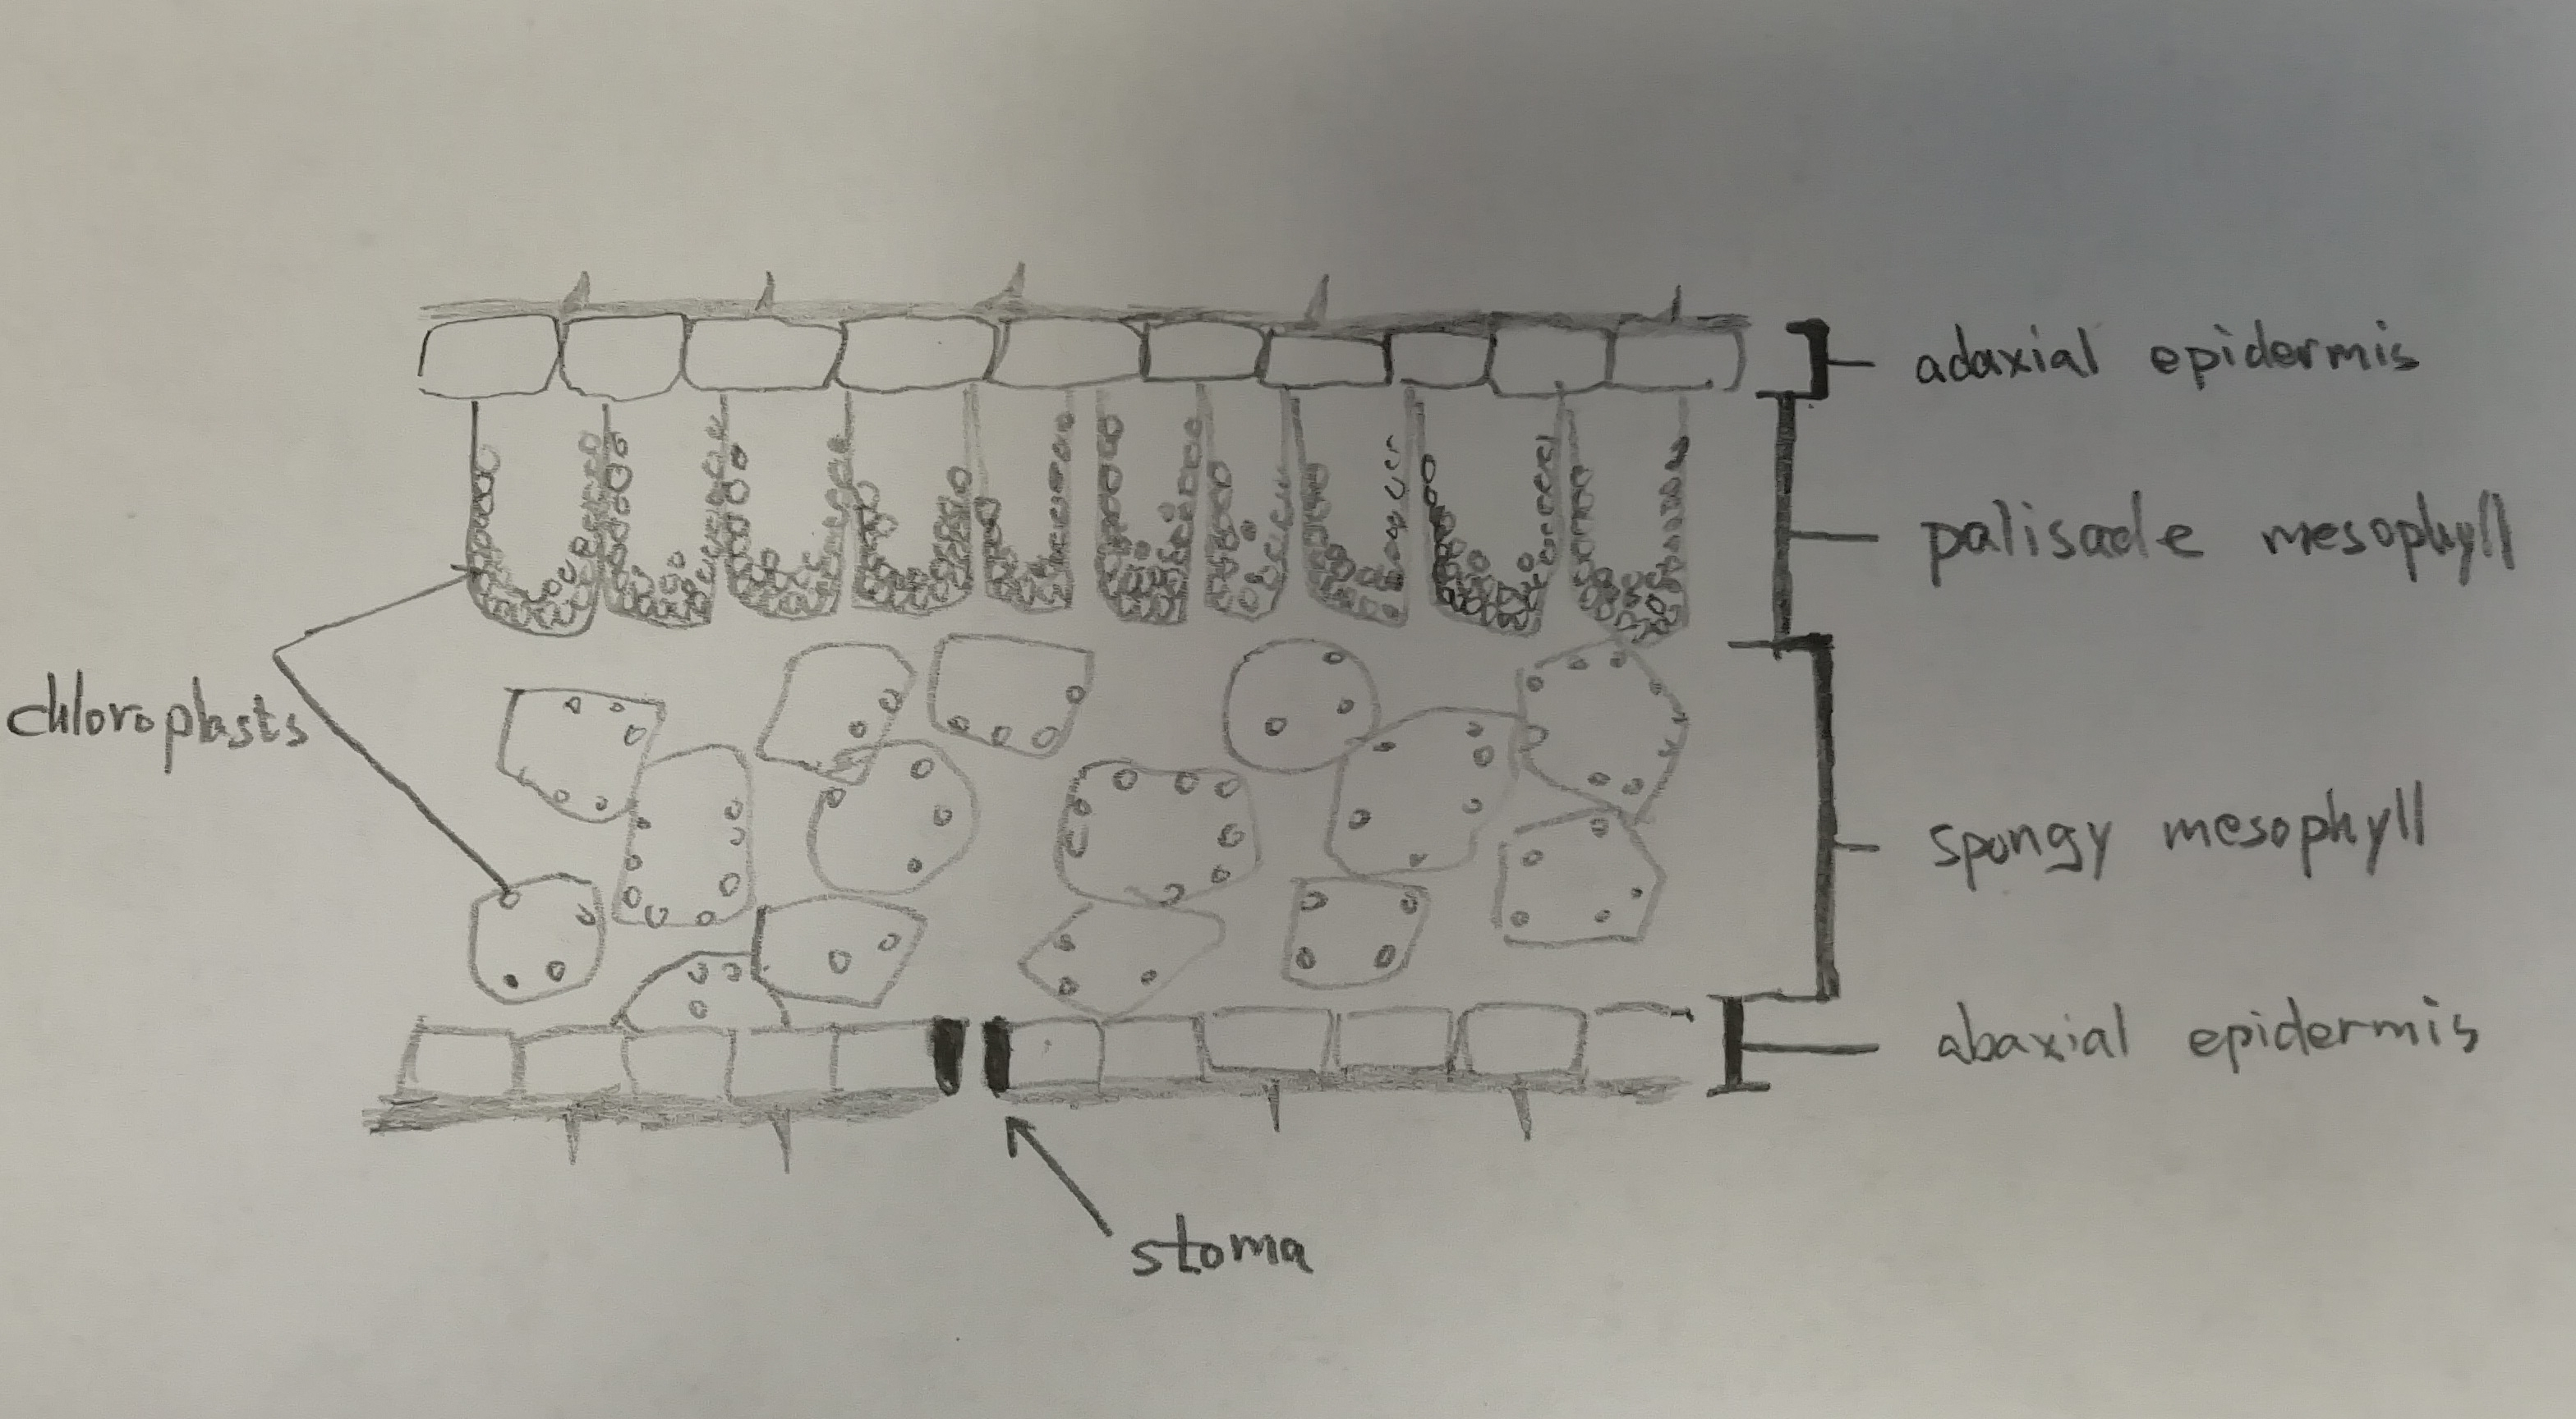 adaxial epidermis
palisade mesophyll
chloroplasts
spongy mesophyll
abaxial epidermis
stoma